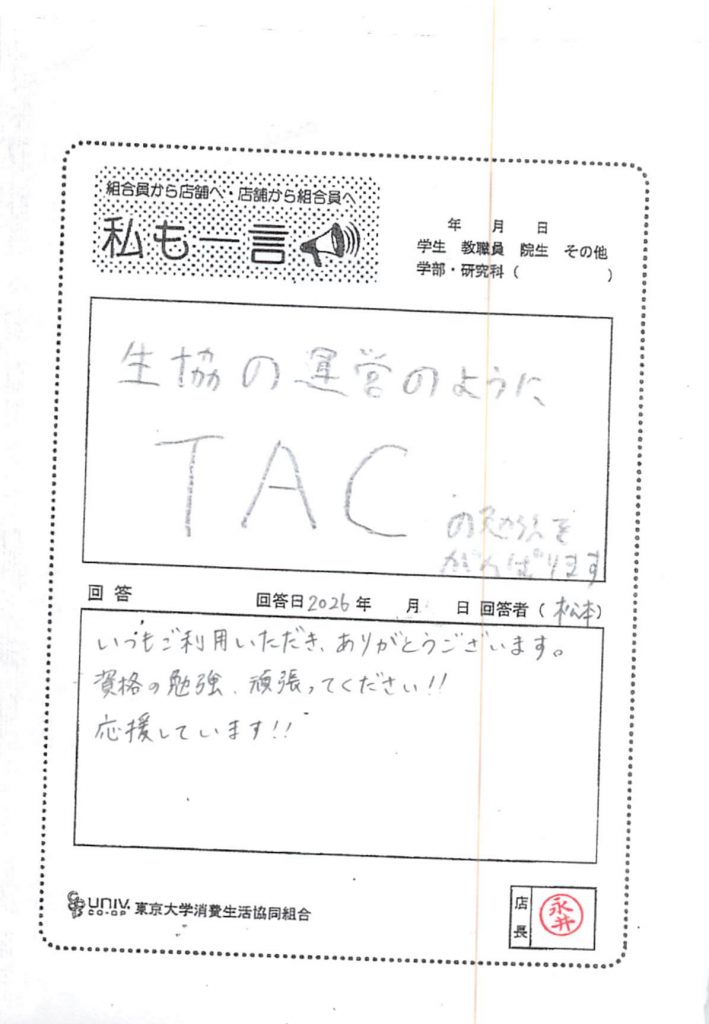 組合員から店舗へ・店舗から組合員へ
私も一言
年 月 日
学生 教職員 院生 その他
学部・研究科（ ）
生協の運営のように
TAC
の
を
がんばります
回答
回答日2026年 月 日 回答者（松本）
いつもご利用いただき、ありがとうございます。
資格の勉強、頑張ってください!!
応援しています!!
UNIV.
CO-OP
東京大学消費生活協同組合
店長
永井